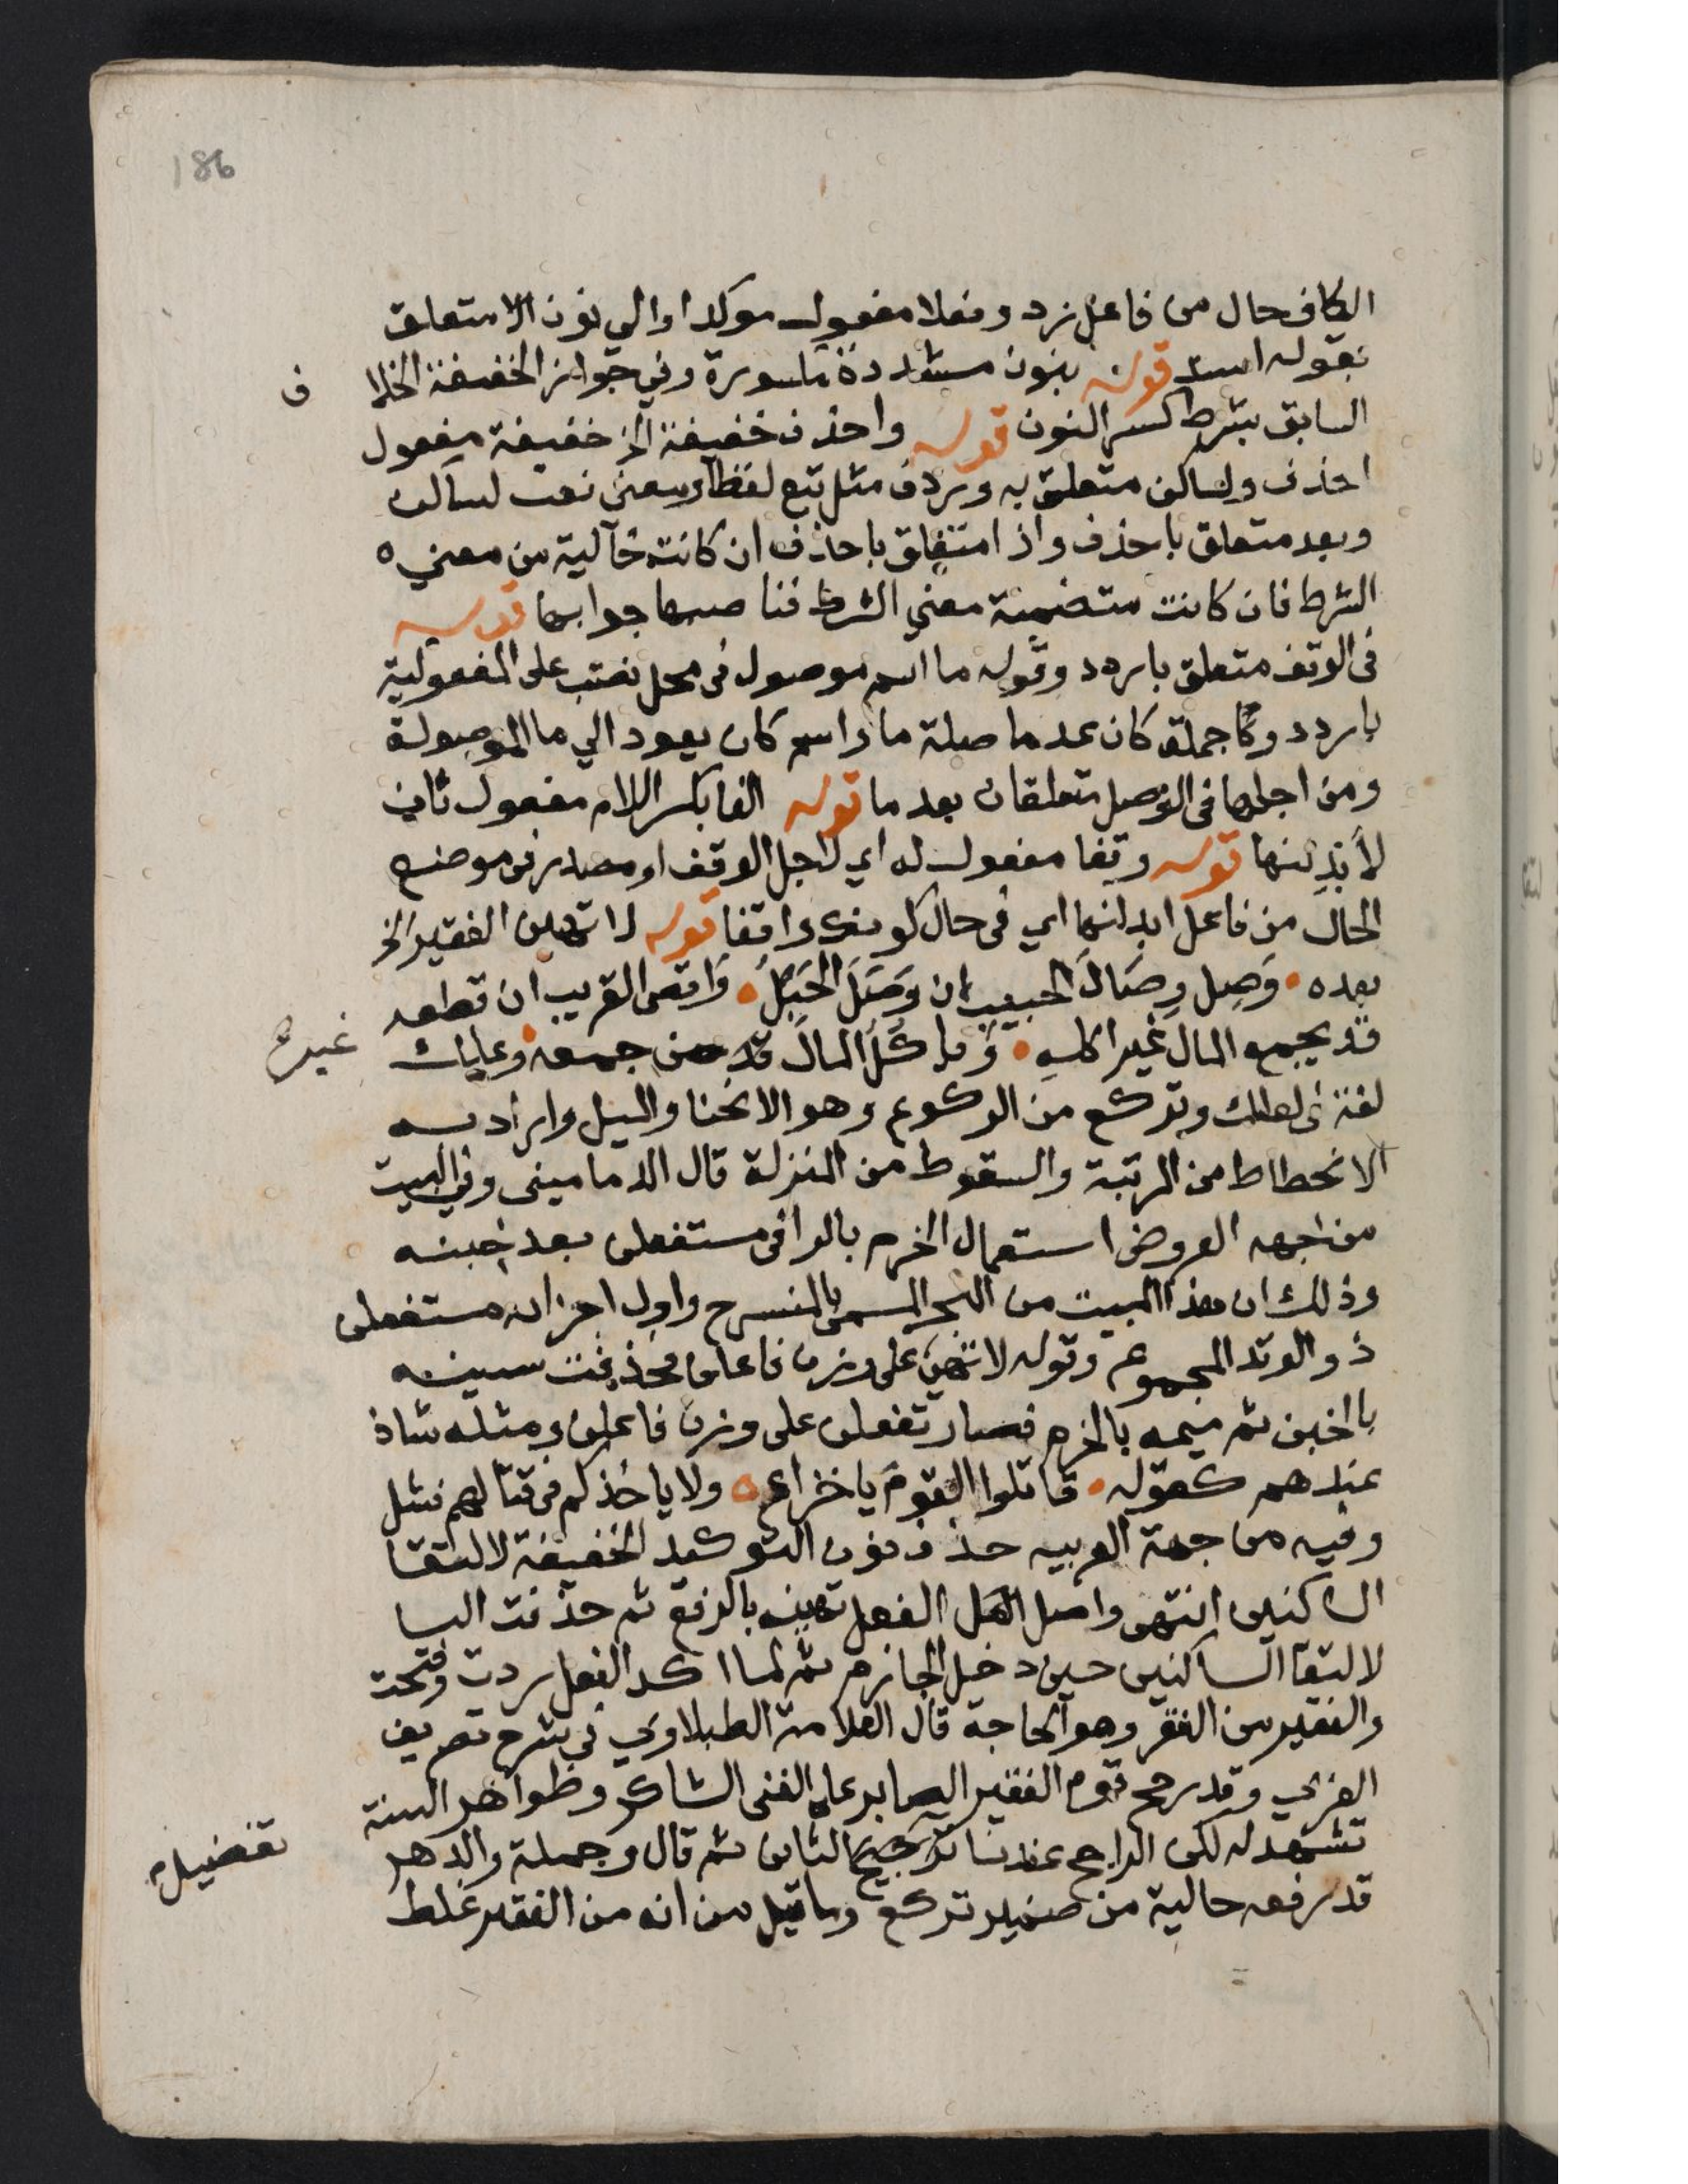 186
الكاف حال من فاعل زد وفعلا مفعول موكدا والي نون الا متعلق
بقوله اسند قوله بنون مشددة مكسورة وفي جواز الخفيفة الخلا
ف
السابق بشرط كسر النون قوله واحذف خفيفة الخ خفيفة مفعول
احذف ولساكن متعلق به وردف مثل تبع لفظا ومعنى نعت لساكن
وبعد متعلق باحذف واذا متعلق باحذف ان كانت خالية من معني ه
الشرط فان كانت متضمنة معني الشرط فناصبها جوابها قوله
في الوقف متعلق باردد وقوله ما اسم موصول في محل نصب على المفعولية
باردد وجملة كان عدما صلة ما واسم كان يعود الي ما الموصولة
ومن اجلها في الوصل متعلقان بعدما قوله الفا بكسر اللام مفعول ثان
لأبدلنها قوله وقفا مفعول له اي لاجل الوقف او مصدر في موضع
الحال من فاعل ابدلنها اي في حال كونك واقفا قوله لا تهين الفقير الخ
بعده وَصِل وِصَالَ الحبيب ان وَصَلَ الحَبْلَ وَاقص القريب ان قطعه
قد يجمع المال غير اكله وَياكُلُ المالَ قد من جمعه وعليك
غيره
لغة في لعلك وتركع من الركوع وهو الانحنا والميل واراد به
الانحطاط من الرتبة والسقوط من المنزلة قال الدماميني وفي البيت
من جهة العروض استعمال الخرم بالرا في مستفعلن بعد خبنه
وذلك ان هذا البيت من البحر المسمى بالمنسرح واول اجزائه مستفعلن
ذو الوتد المجموع وقوله لا تهين على وزن فاعلن فحذفت سينه
بالخبن ثم ميمه بالخرم فصار تفعلن على وزن فاعلن ومثله شاذ
عندهم كقوله قاتلوا القوم يا خزاع ولا ياخذكم في قتالهم فشل
وفيه من جهة العربيه حذف نون التوكيد الخفيفة لالتقا
الساكنين انتهى واصل الفعل تهين بالرفع ثم حذفت اليا
لالتقا الساكنين حين دخل الجازم ثم لما اكد الفعل ردت وفتحت
والفقير من الفقر وهو الحاجة قال العلامة الطبلاوي في شرح تصريف
العزي وقد رجح قوم الفقير الصابر على الغني الشاكر وظواهر السنة
تشهد له لكن الراجح عندنا ترجيح الثاني ثم قال وجملة والدهر
تفضيل
قد رفعه حالية من ضمير تركع وما قيل من انه من الفقير غلط